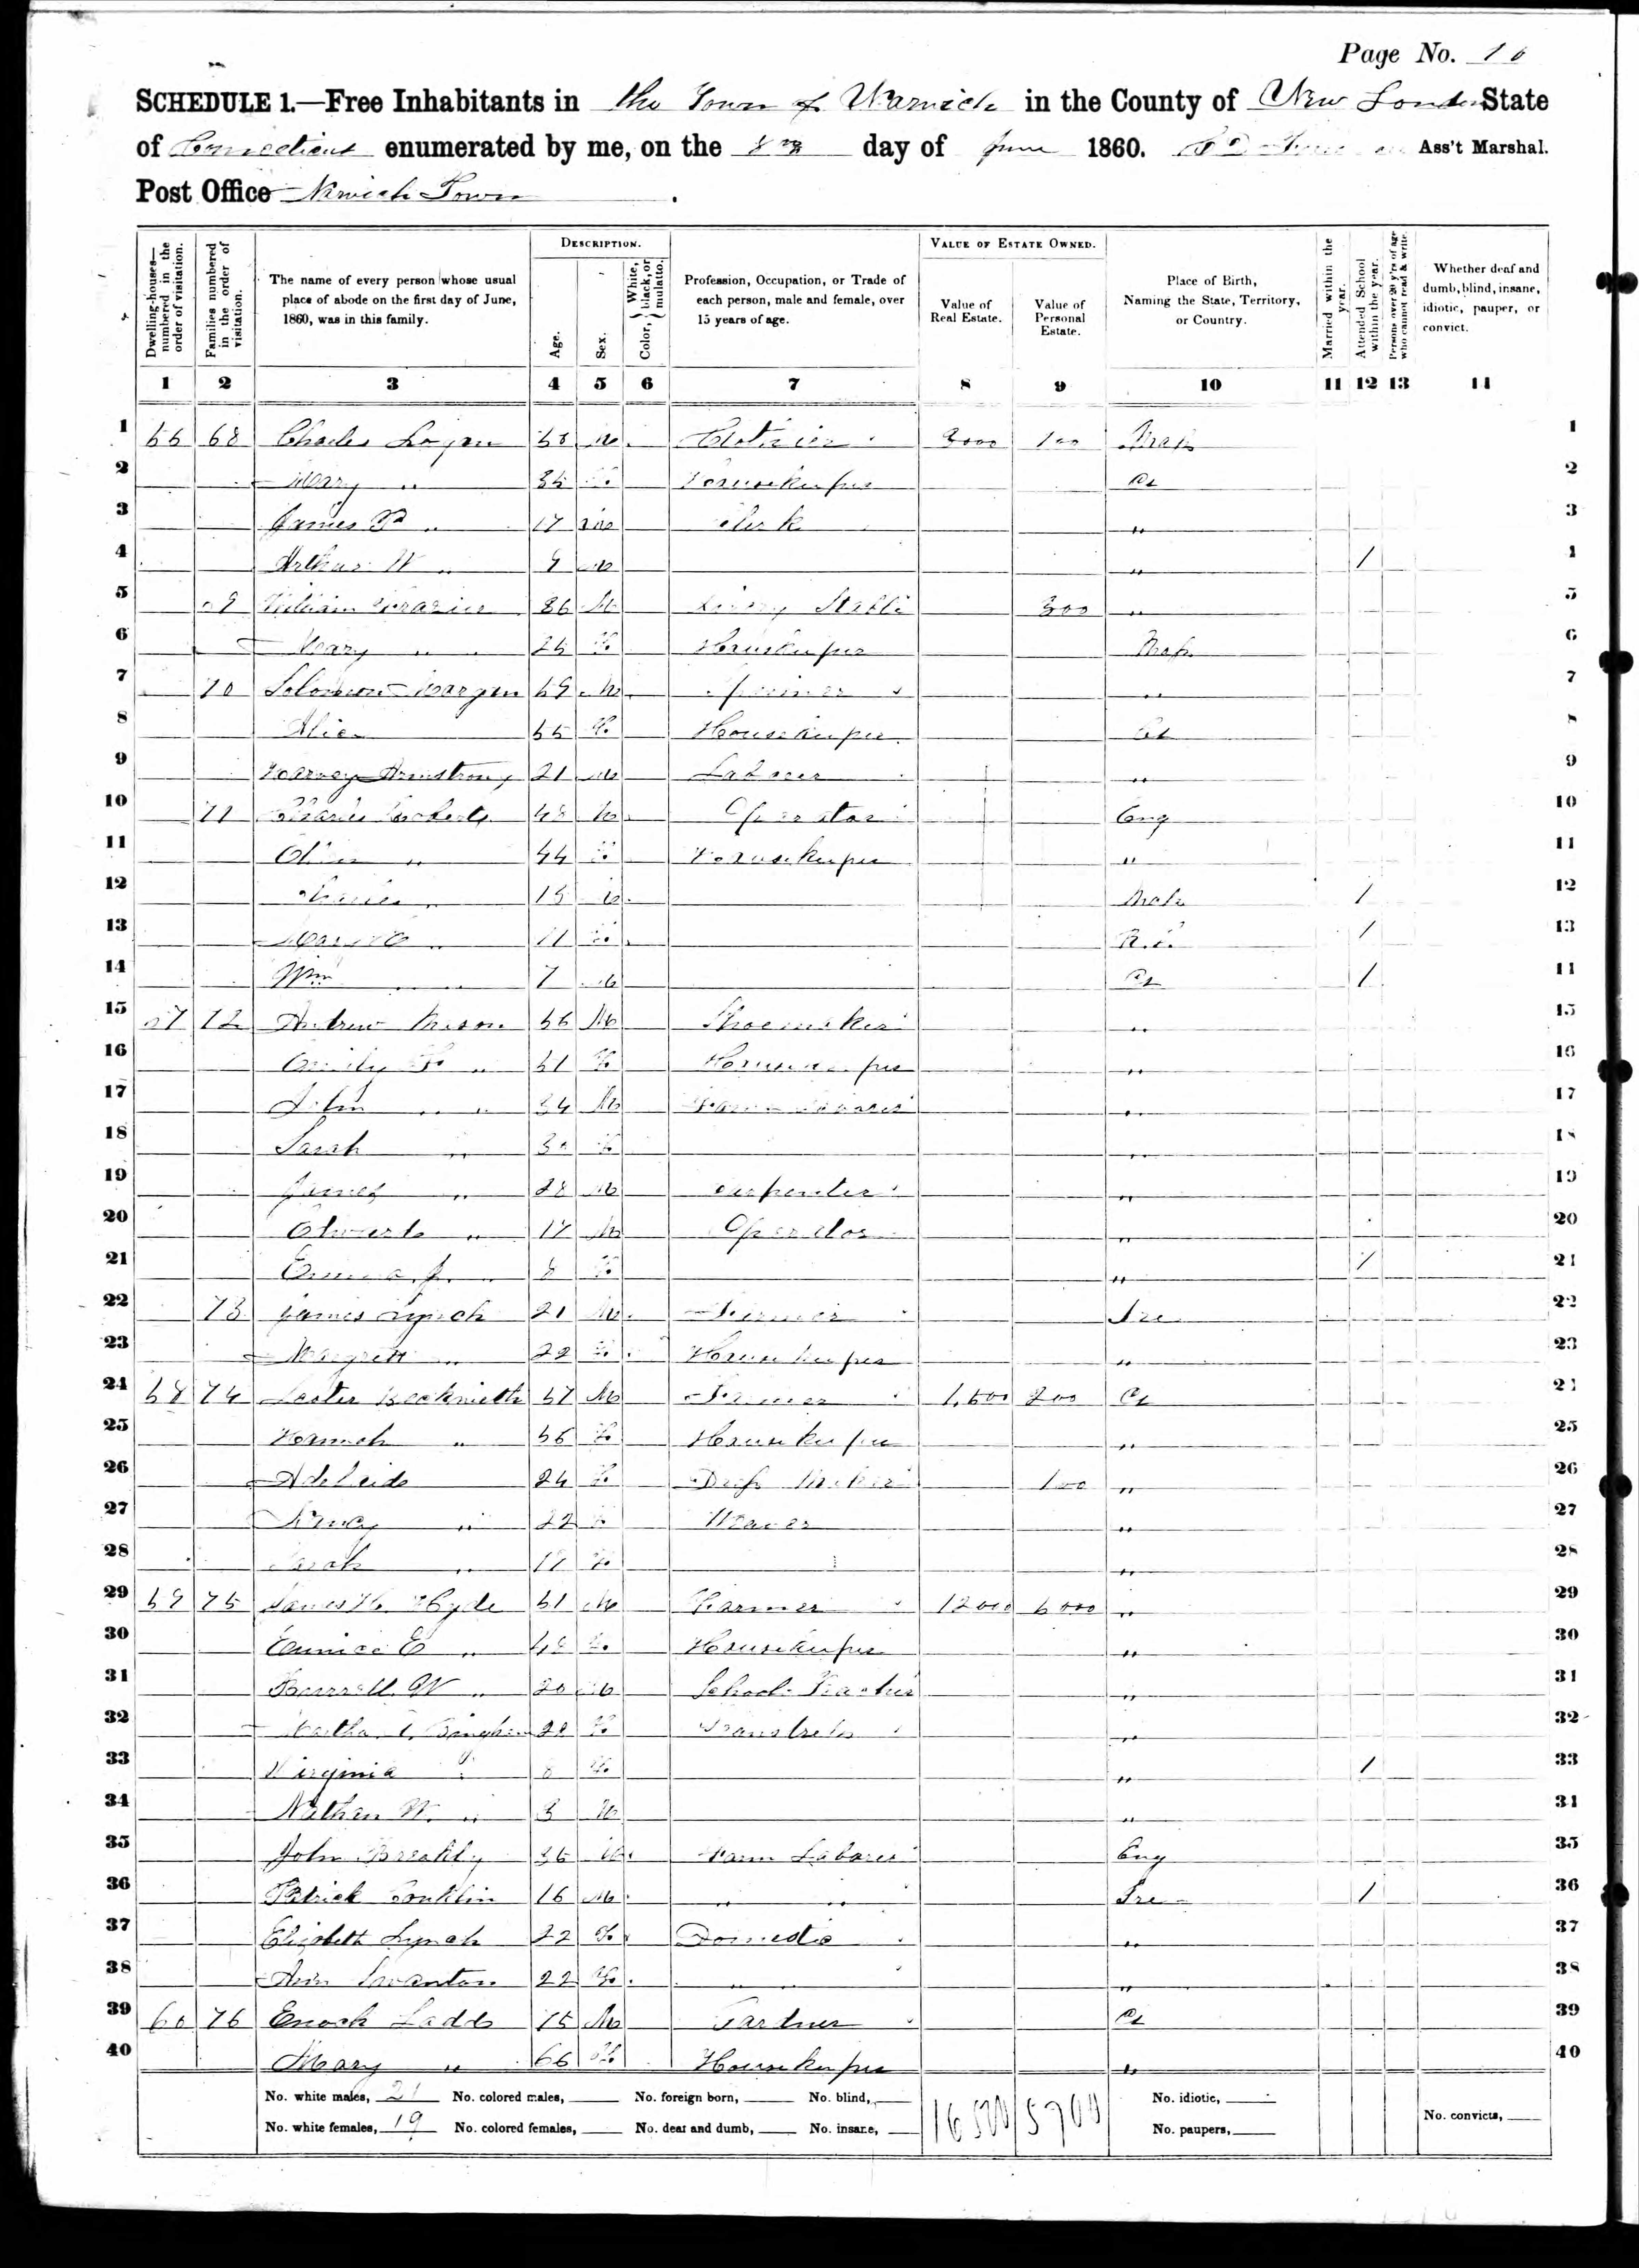 Page No. 10
SCHEDULE 1.—Free Inhabitants in the Town of Norwich in the County of New London State
of Connecticut enumerated by me, on the 8th day of June 1860. Ass't Marshal.
Post Office Norwich Town.
Dwelling-houses—numbered in the order of visitation.
Families numbered in the order of visitation.
The name of every person whose usual place of abode on the first day of June, 1860, was in this family.
DESCRIPTION.
Age.
Sex.
Color, { White, black, or mulatto.
Profession, Occupation, or Trade of each person, male and female, over 15 years of age.
VALUE OF ESTATE OWNED.
Value of Real Estate.
Value of Personal Estate.
Place of Birth, Naming the State, Territory, or Country.
Married within the year.
Attended School within the year.
Persons over 20 y'rs of age who cannot read & write.
Whether deaf and dumb, blind, insane, idiotic, pauper, or convict.
1 2 3 4 5 6 7 8 9 10 11 12 13 14
1 56 68 Charles M Clothier 3000 100 Mass 1
2 Mary " 35 F Housekeeper Ct 2
3 James " 17 M Clerk " 3
4 Arthur W " 9 M " / 4
5 69 William 36 M Livery Stable 300 " 5
6 Mary " 25 F Housekeeper Mass 6
7 70 Solomon 59 M " 7
8 Alice 55 F Housekeeper Ct 8
9 Harvey Armstrong 21 M Laborer " 9
10 71 Charles 48 M Operator Eng 10
11 " 44 F Housekeeper " 11
12 Charles " 15 M Mass / 12
13 Mary " 11 F R.I. / 13
14 Wm " 7 M Ct / 14
15 57 72 Andrew 56 M Shoemaker " 15
16 Emily " 51 F Housekeeper " 16
17 John " 34 M Farm Laborer " 17
18 Sarah " 30 F " 18
19 James " 28 M Carpenter " 19
20 Edward " 17 M Operator " 20
21 Emma J. " 8 F " / 21
22 73 James Lynch 21 M Farmer Ire 22
23 Margrett " 22 F Housekeeper " 23
24 58 74 Lester Beckwith 57 M Farmer 1,500 200 Ct 24
25 Hannah " 56 F Housekeeper " 25
26 Adelaide 24 F Dress Maker 100 " 26
27 Nancy " 22 F Weaver " 27
28 Sarah " 17 F " 28
29 59 75 James H. Hyde 51 M Farmer 12000 5000 " 29
30 Eunice E " 48 F Housekeeper " 30
31 Burrell W " 20 M School Teacher " 31
32 Martha Bingham 28 F " 32
33 Virginia " F " / 33
34 Nathan W. " 3 M " 34
35 John M Farm Laborer Eng 35
36 Patrick Conklin 16 M " " Ire / 36
37 Elizabeth Lynch 22 F Domestic " 37
38 Ann Swanton 22 F " " 38
39 60 76 Enoch Ladd 75 M Gardner Ct 39
40 Mary " 66 F Housekeeper " 40
No. white males, 21 No. colored males, No. foreign born, No. blind, 16500 5700 No. idiotic,
No. white females, 19 No. colored females, No. deaf and dumb, No. insane, No. paupers, No. convicts,